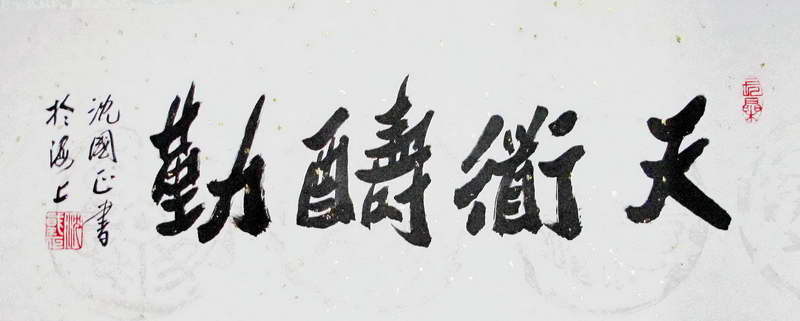 天衜醻勤
沈國正書
於海上